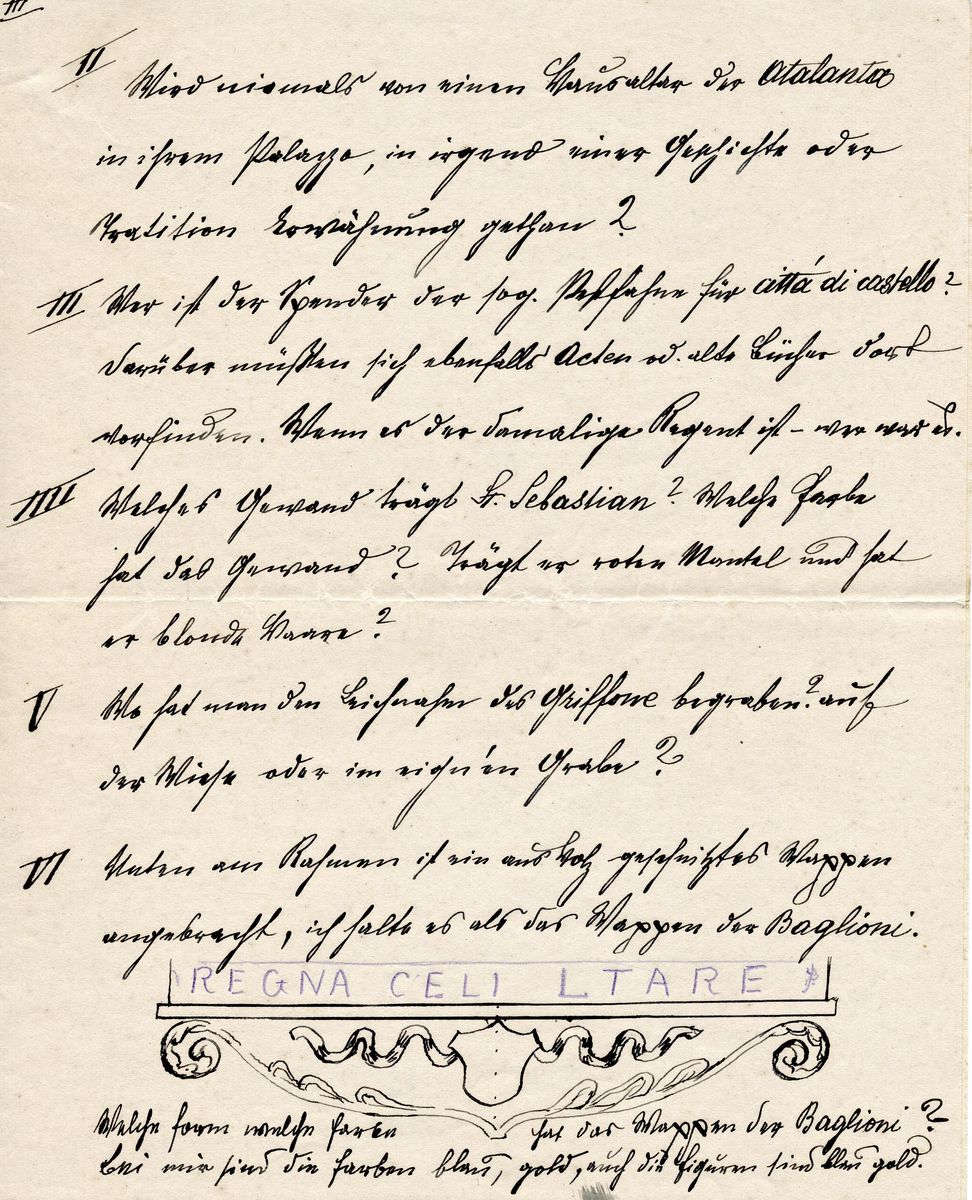 III
II Wird niemals von einen Hausaltar der Atalanta
in ihrem Palazzo, in irgend einer Geschichte oder
Tratition Erwähnung gethan?
III Wer ist der Spender der sog. Pestfahne für cittá di castello?
darüber müßten sich ebenfalls Acten od. alte Bücher dort
vorfinden. Wenn es der damalige Regent ist – wer war es.
IIII Welches Gewand trägt St. Sebastian? Welche Farbe
hat das Gewand? Trägt er roten Mantel und hat
er blonde Haare?
V Wo hat man den Leichnahm des Griffone begraben? auf
der Wiese oder im eign'en Grabe?
VI Unten am Rahmen ist ein aus Holz geschnitztes Wappen
angebracht, ich halte es als das Wappen der Baglioni.
REGNA CELI LTARE
Welche form welche farbe hat das Wappen der Baglioni?
bei mir sind die farben blau, gold, auch die figuren sind blau gold.